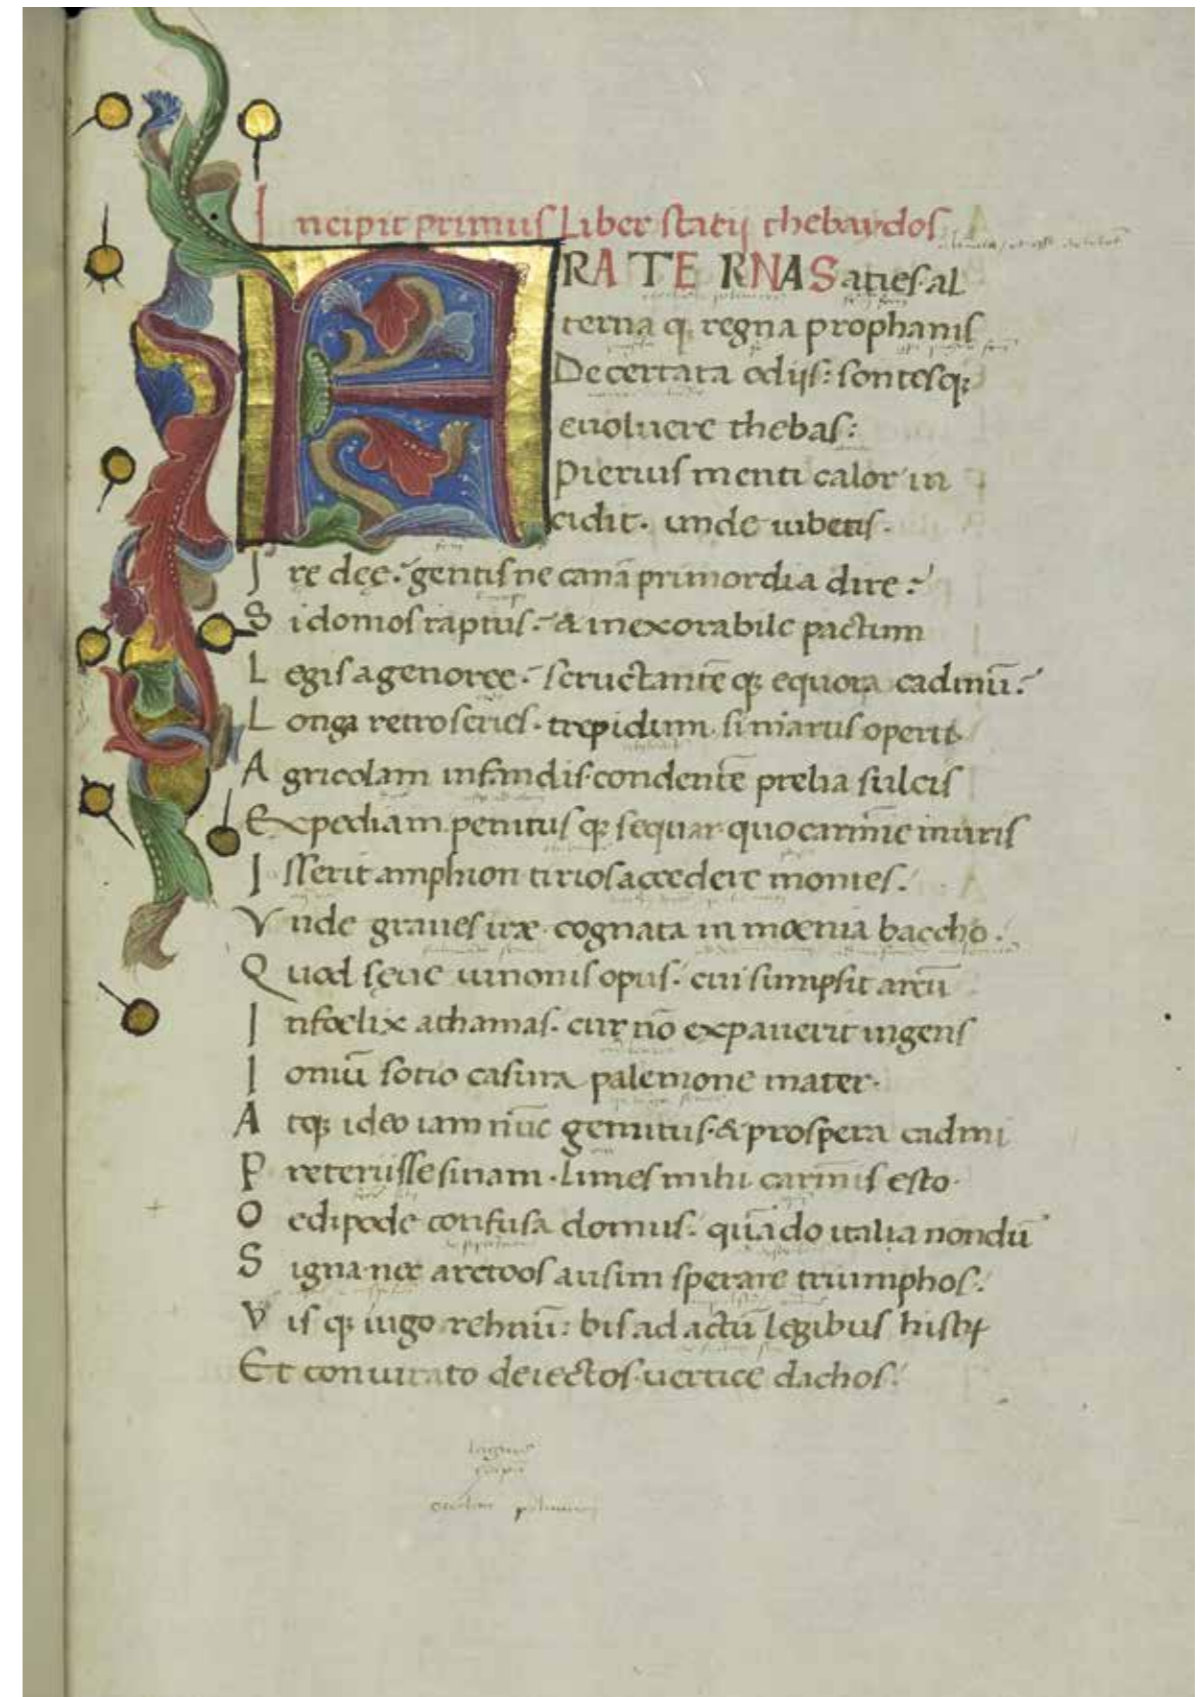 Incipit primus Liber statij thebaydos
FRATERNAS aties al
terna q; regna prophanis
Decertata odijs: sontesq;
euoluere thebas:
Pierius menti calor in
cidit. unde iubetis.
Ire deę: gentis ne canā primordia dire:
Sidonios raptus: & inexorabile pactum
Legis agenoreę: scructantē q; equora cadmū:
Longa retro series. trepidum. si martis operti
Agricolam infandis condentē prelia sulcis
Expediam penitus q; sequar quo carmīe muris
Isserit amphion tirios accedere montes.
Vnde graues iræ cognata in mœnia baccho.
Quod sęue iunonis opus. cui sumpsit arcū
Infœlix athamas. cur nō expauerit ingens
Ioniū sotio casura palemone mater.
Atq; ideo iam nūc gemitus & prospera cadmi
Preterijsse sinam. Limes mihi carmīs esto.
Oedipode confusa domus. quādo italia nondū
Signa. nec arctoos ausim sperare triumphos.
Vis q; iugo rehnū: bis ad actū legibus histrꝝ
Et coniurato deiectos uertice dachos.